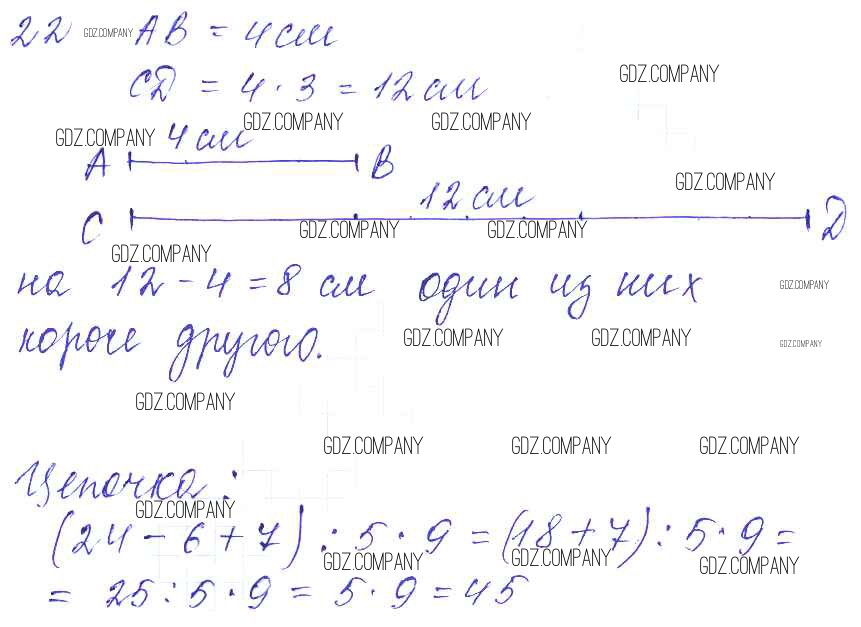 22 GDZ.COMPANY AB = 4 см
GDZ.COMPANY
CD = 4 · 3 = 12 см
GDZ.COMPANY GDZ.COMPANY
GDZ.COMPANY 4 см
A B
GDZ.COMPANY
12 см
C D
GDZ.COMPANY GDZ.COMPANY
GDZ.COMPANY
на 12 - 4 = 8 см один из них
GDZ.COMPANY
короче другого.
GDZ.COMPANY GDZ.COMPANY GDZ.COMPANY
GDZ.COMPANY
GDZ.COMPANY GDZ.COMPANY GDZ.COMPANY
Цепочка:
GDZ.COMPANY
(24 - 6 + 7) : 5 · 9 = (18 + 7) : 5 · 9 =
GDZ.COMPANY GDZ.COMPANY GDZ.COMPANY
= 25 : 5 · 9 = 5 · 9 = 45